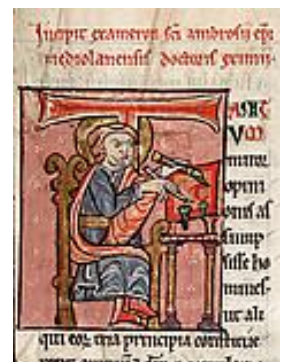 Incipit exameron sci ambrosii epi
mediolanensis doctoris
TANT
VM
opini
onis as
sump
sisse ho
mines
ut ali
qui eoꝝ tria principia constitue